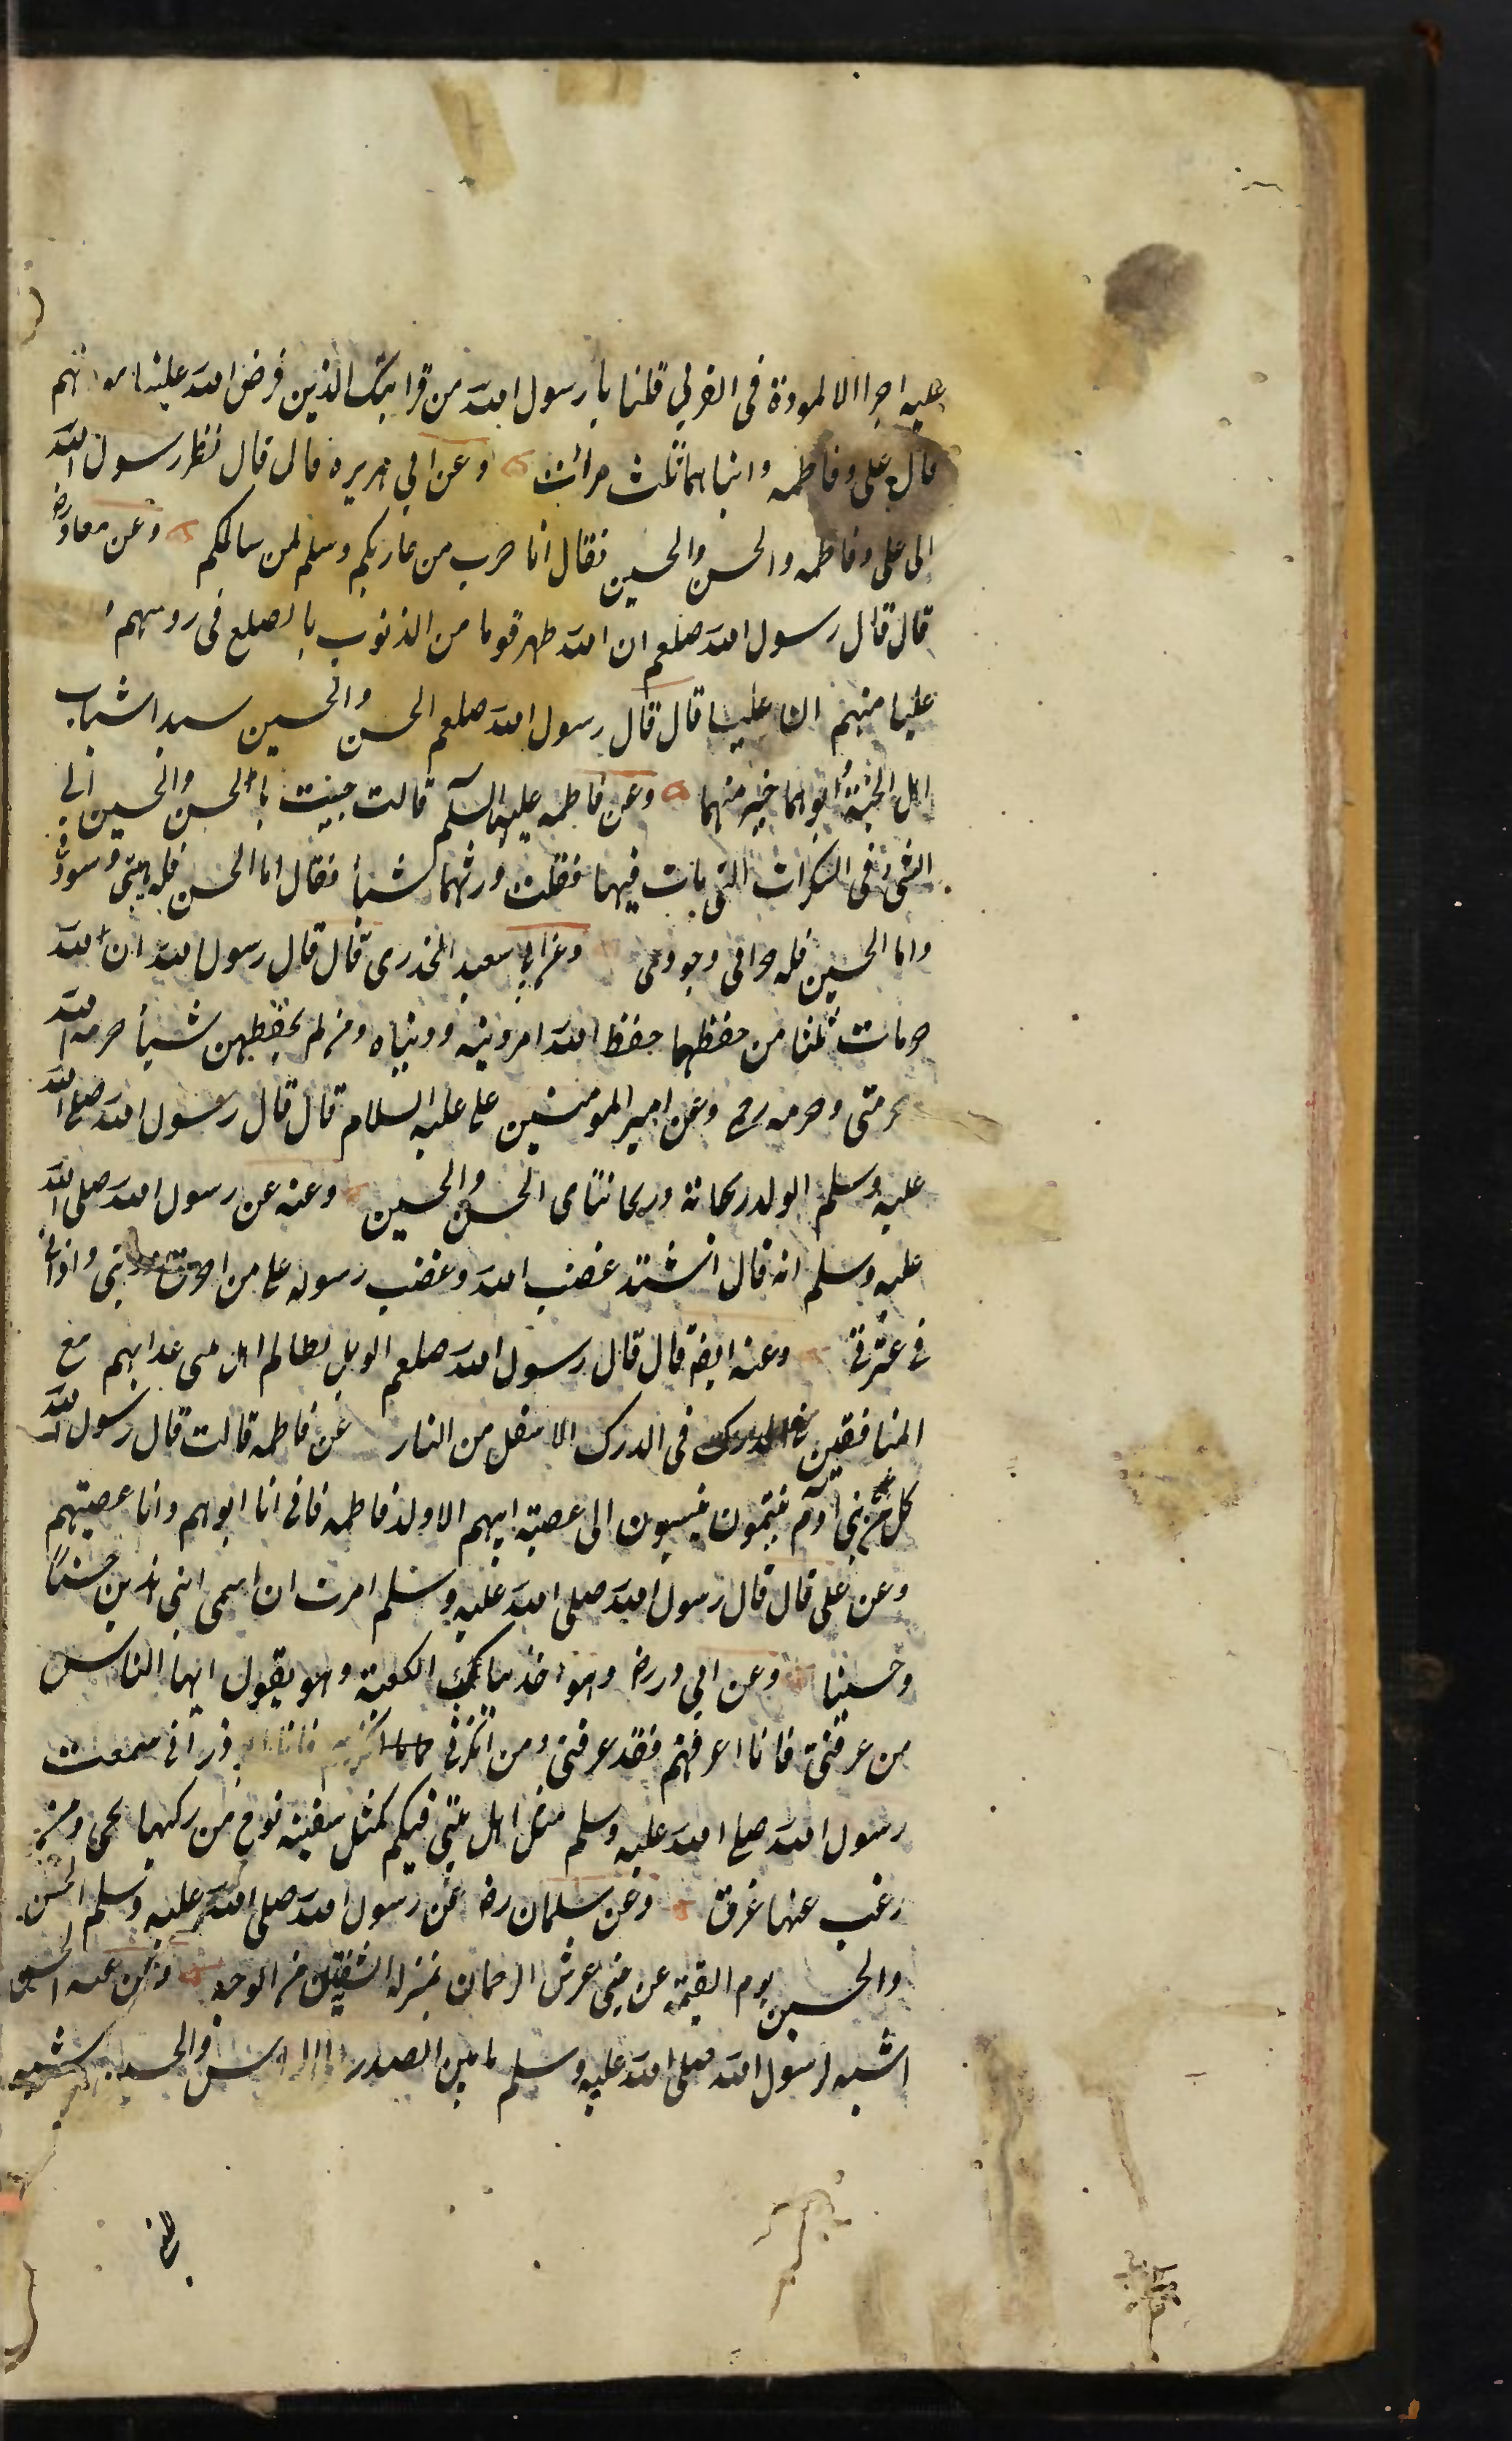 عليه اجرا الا المودة فى القربى قلنا يا رسول الله من قرابتك الذين فرض الله علينا مودتهم
قال على وفاطمه وابناهما ثلث مرات وعن ابى هريره قال قال نظر رسول الله
الى على وفاطمه والحسن والحسين فقال انا حرب من حاربكم وسلم لمن سالمكم وعن معاذ رض
قال قال رسول الله صلعم ان الله طهر قوما من الذنوب بالصلع فى روسهم
عليا منهم ان عليا قال قال رسول الله صلعم الحسن والحسين سيدا شباب
اهل الجنة وابوهما خير منهما وعن فاطمه عليها السلم قالت جيئت بالحسن والحسين الى
النبى فى السكرات التى بات فيها فقلت ورثهما شيأ فقال اما الحسن فله هيبتى وسودد
واما الحسين فله جراتى وجودى وعن ابى سعيد الخدرى قال قال رسول الله ان لله
حرمات ثلثا من حفظها حفظ الله امر دينه ودنياه ومن لم يحفظهن شيأ حرمه الله
حرمتى وحرمه وعن امير المومنين على عليه السلام قال قال رسول الله صلى الله
عليه وسلم الولد ريحانة وريحانتاى الحسن والحسين وعنه عن رسول الله صلى الله
عليه وسلم انه قال اشتد غضب الله وغضب رسوله على من واذانى
فى عترتى وعنه ايضا قال قال رسول الله صلعم الويل لظالم اهل بيتى عذابهم مع
المنافقين فى الدرك الاسفل من النار عن فاطمه قالت قال رسول الله
كل بنى آدم ينتمون ينسبون الى عصبة ابيهم الا ولد فاطمه فانى انا ابوهم وانا عصبتهم
وعن على قال قال رسول الله صلى الله عليه وسلم امرت ان اسمى ابنى هذين حسنا
وحسينا وعن ابى ذر رض وهو اخذ بباب الكعبة وهو يقول ايها الناس
من عرفنى فانا اعرفهم فقد عرفنى ومن انكرنى فانا ابو ذر انى سمعت
رسول الله صلى الله عليه وسلم مثل اهل بيتى فيكم كمثل سفينه نوح من ركبها نجى ومن
رغب عنها غرق وعن سلمان رض عن رسول الله صلى الله عليه وسلم الحسن
والحسين يوم القيمة عن جنبى عرش الرحمان بمنزله الشفتين من الوجه وعن عنه الحسن
اشبه لرسول الله صلى الله عليه وسلم ما بين الصدر الى الراس والحسين شبيه